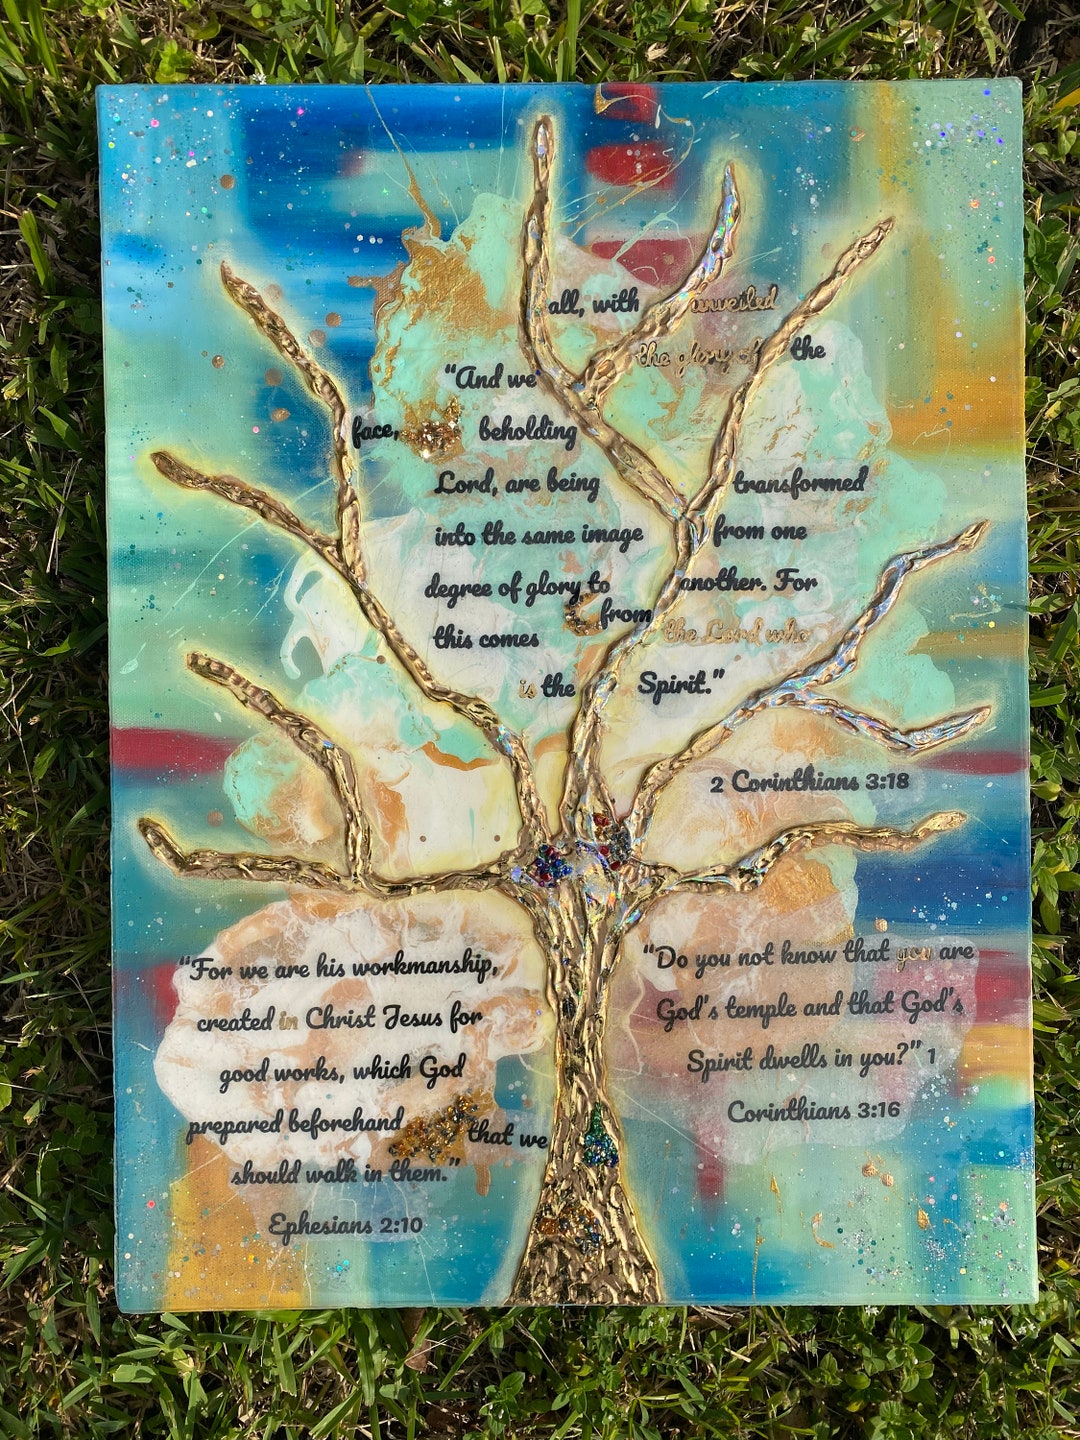 “And we all, with unveiled
face, beholding the glory of the
Lord, are being transformed
into the same image from one
degree of glory to another. For
this comes from the Lord who
is the Spirit.”
2 Corinthians 3:18
“For we are his workmanship,
created in Christ Jesus for
good works, which God
prepared beforehand that we
should walk in them.”
Ephesians 2:10
“Do you not know that you are
God's temple and that God's
Spirit dwells in you?” 1
Corinthians 3:16